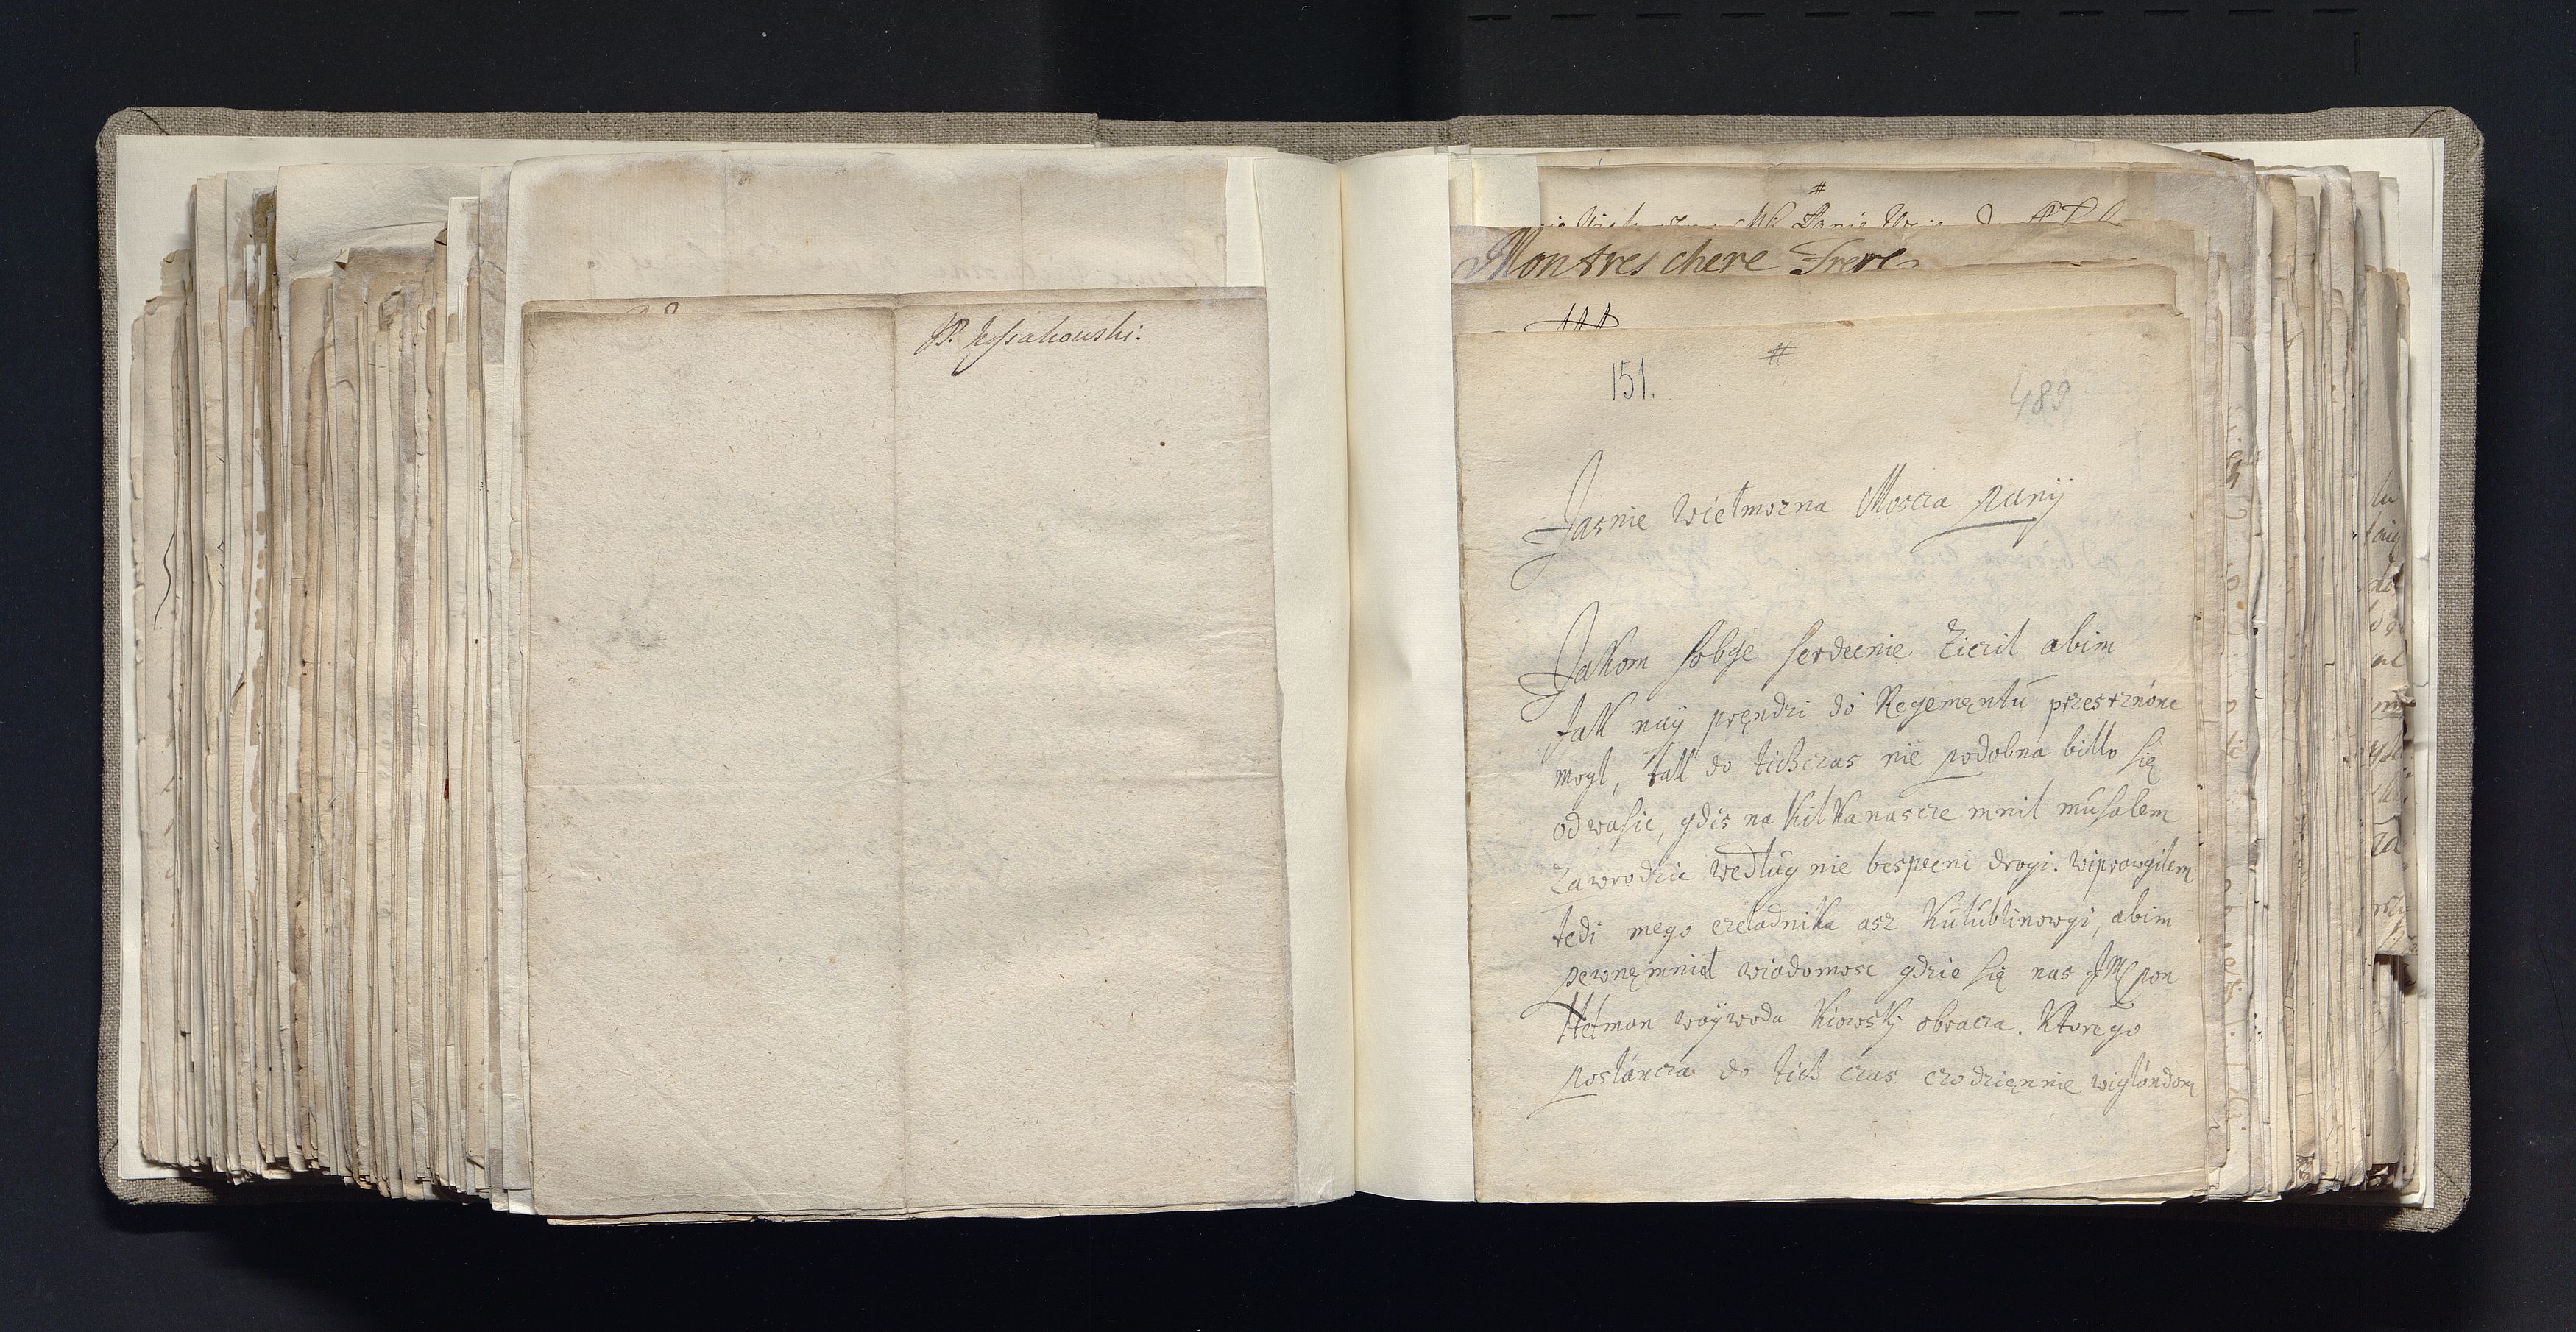 P. Kossakowski:
Montres chere Frere
#
151.
489
Jasnie wielmozna Moscia panij
Jakom sobge serdecnie ziczil abim
Jak naÿ pręndzi do Regemęntu przesrznónc
mogl, tak do tichczas nie podobna billo się
odwasic, gdis na kilkanascze mnil musalem
zawrodzic wedlug nie bespecni drogi. wiprawgilem
tedi mego czeladnika asz ku lublinowgi, abim
pewnę mniel wiadomosc gdzie się nas JMC pon
Hetman woÿwoda Kiowskj obracza. Ktorego
poslancza do tich czas czodzięnnie wiglóndom